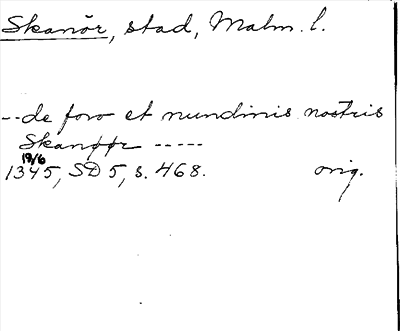 Skanör, stad, Malm. l.
--de foro et nundinis nostris
Skanøør -----
19/6
1345, SD 5, s. 468. orig.